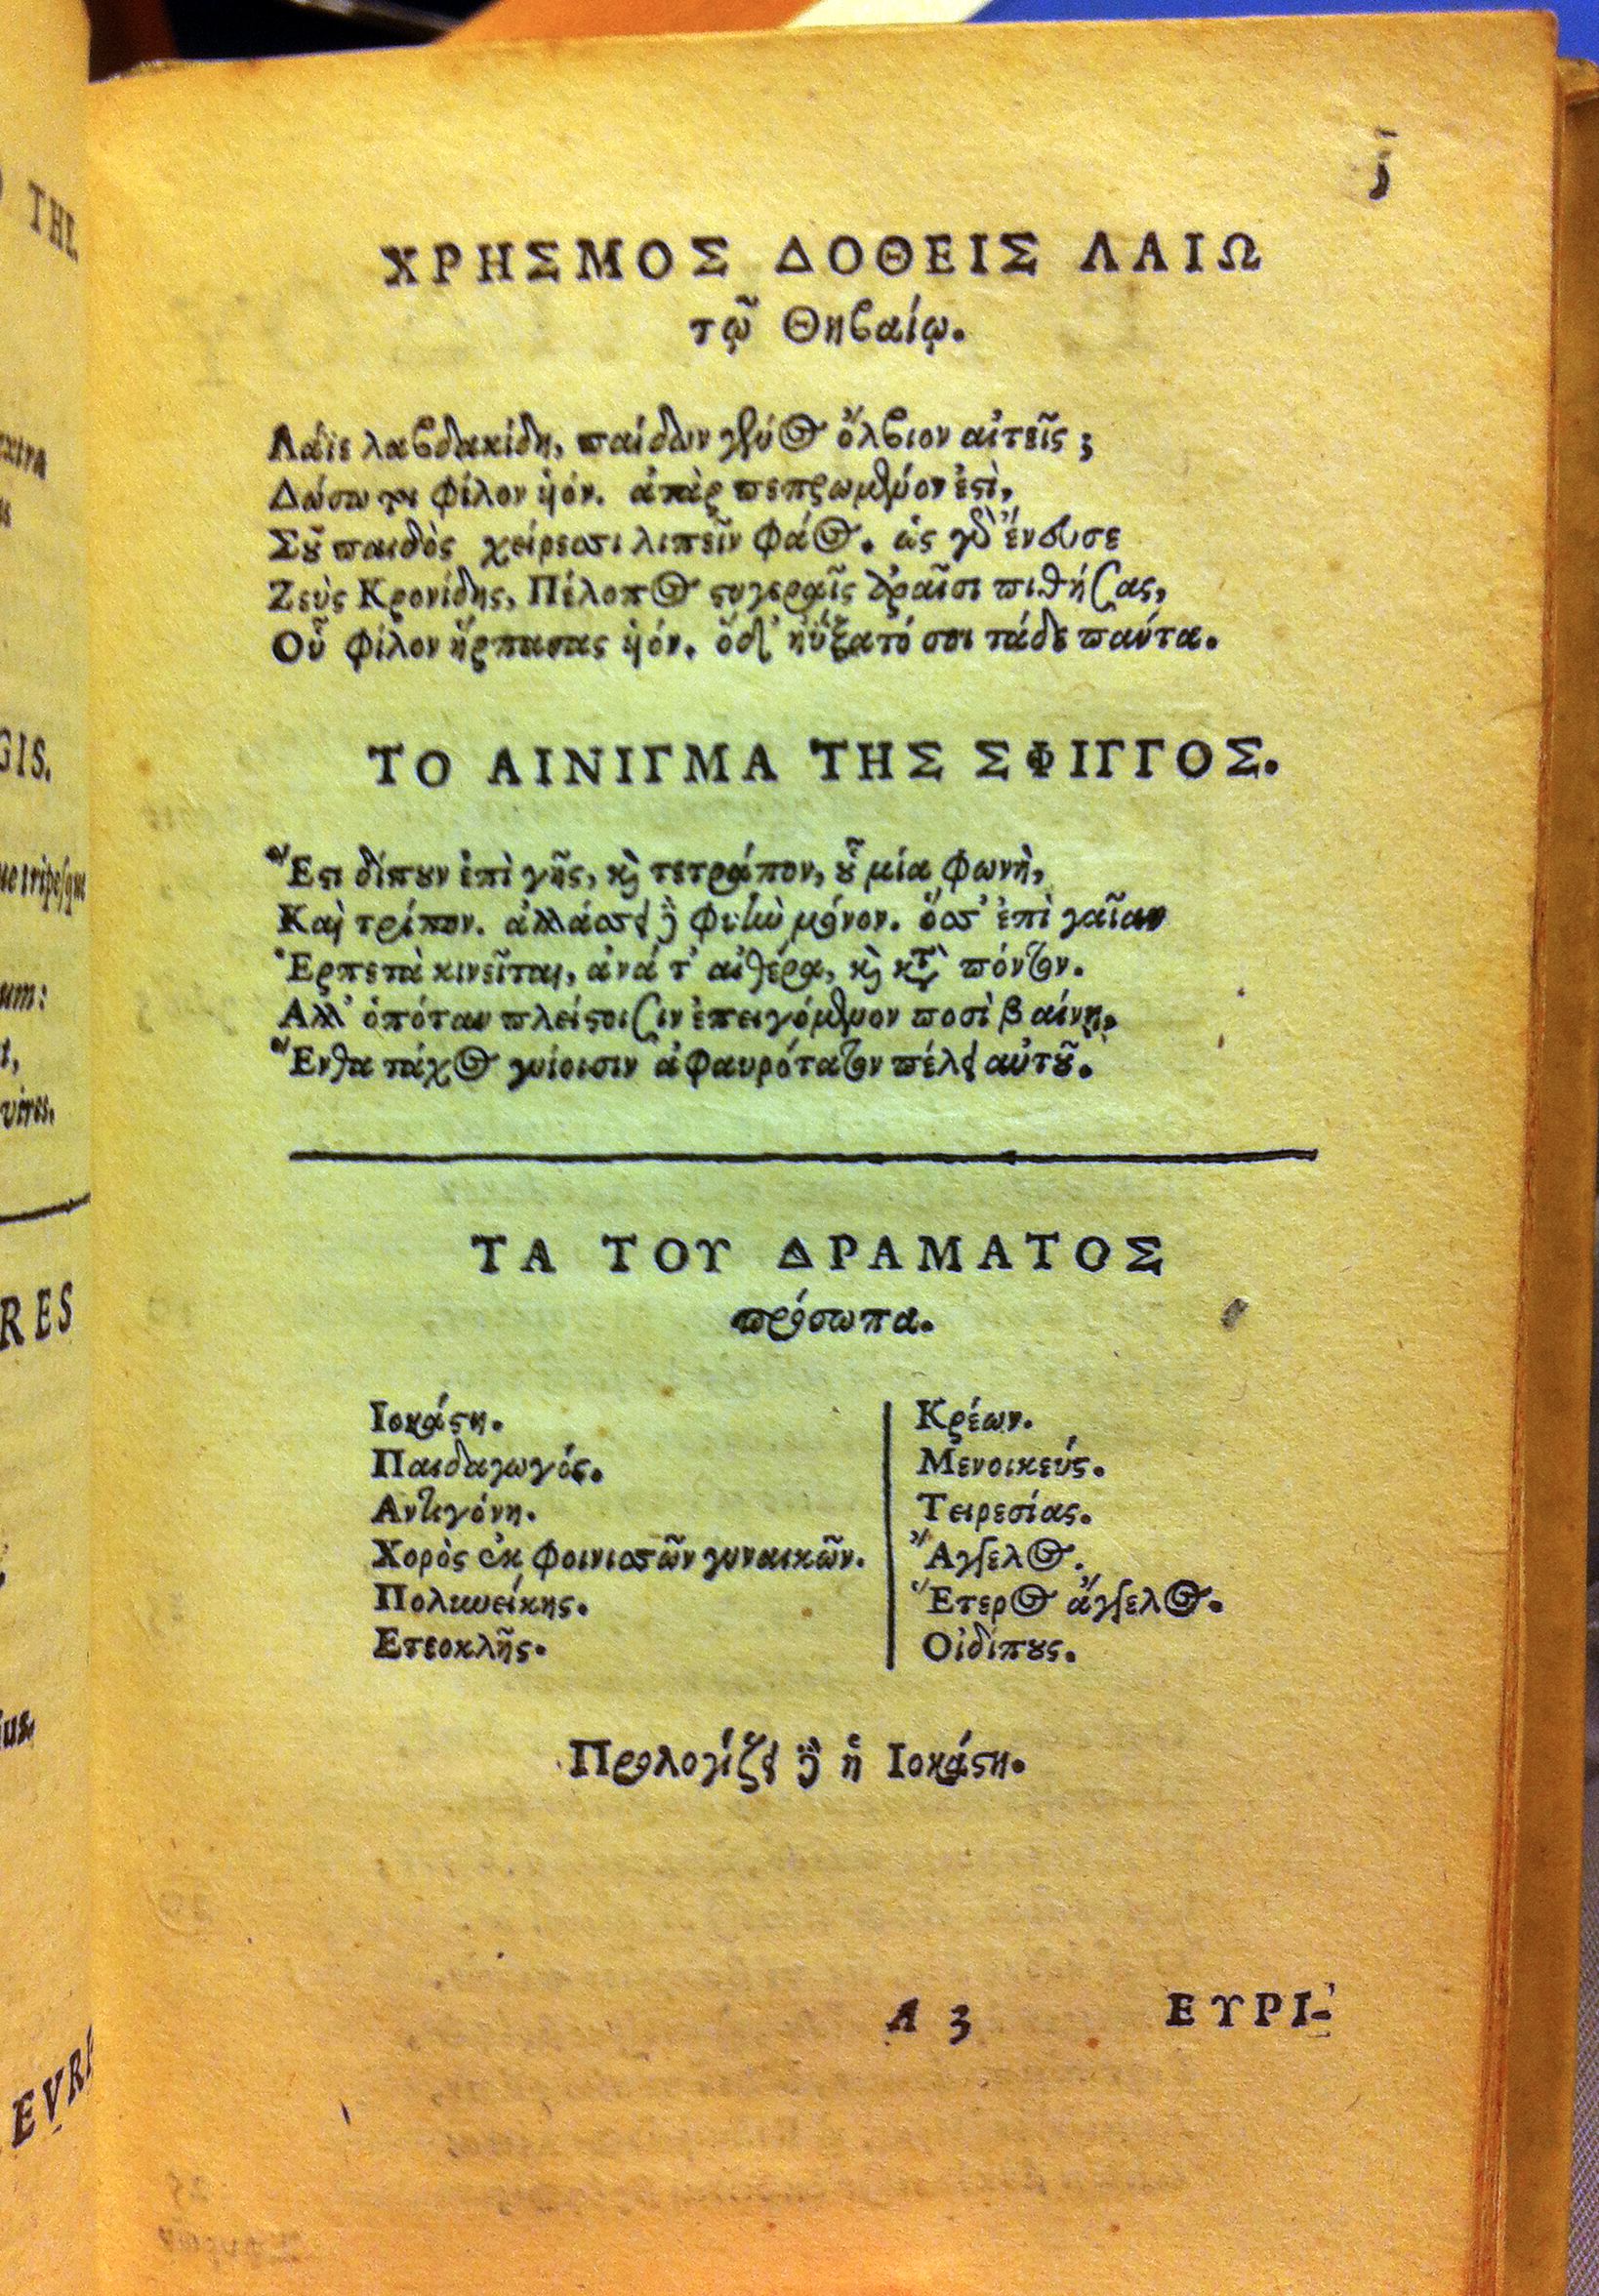 ΧΡΗΣΜΟΣ ΔΟΘΕΙΣ ΛΑΙΩ
τῷ Θηϐαίῳ.
Λάϊε λαϐδακίδη, παίδων γένος ὄλϐιον αἰτεῖς;
Δώσω τοι φίλον υἱόν. ἀτὰρ πεπρωμένον ἐστὶ,
Σοῦ παιδὸς χείρεσσι λιπεῖν φάος. ὡς γὰρ ἔνευσε
Ζεὺς Κρονίδης, Πέλοπος στυγεραῖς ἀραῖσι πιθήσας,
Οὗ φίλον ἥρπασας υἱόν. ὁ δ' ηὔξατό σοι τάδε πάντα.
ΤΟ ΑΙΝΙΓΜΑ ΤΗΣ ΣΦΙΓΓΟΣ.
Ἔστι δίπουν ἐπὶ γῆς, καὶ τετράπον, οὗ μία φωνὴ,
Καὶ τρίπον. ἀλλάσσει δὲ φυὴν μόνον. ὅσσ' ἐπὶ γαῖαν
Ἑρπετὰ κινεῖται, ἀνά τ' αἰθέρα, καὶ κατὰ πόντον.
Ἀλλ' ὁπόταν πλείστοισιν ἐπειγόμενον ποσὶ βαίνῃ,
Ἔνθα τάχος γυίοισιν ἀφαυρότατον πέλει αὐτοῦ.
ΤΑ ΤΟΥ ΔΡΑΜΑΤΟΣ
πρόσωπα.
Ιοκάστη.
Παιδαγωγός.
Αντιγόνη.
Χορὸς ἐκ Φοινισσῶν γυναικῶν.
Πολυνείκης.
Ετεοκλῆς.
Κρέων.
Μενοικεύς.
Τειρεσίας.
Ἄγγελος.
Ἕτερος ἄγγελος.
Οἰδίπους.
Προλογίζει δὲ ἡ Ιοκάστη.
A 3 ΕΥΡΙ-
THE
GIS.
um:
vires.
RES
EVRI